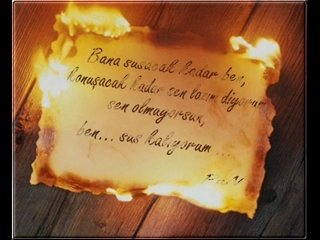 Bana susacak kadar ben,
konuşacak kadar sen lazım diyorum
sen olmuyorsun,
ben... sus kalıyorum ....